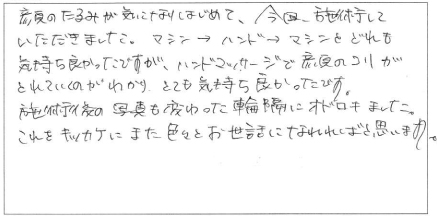 顔のたるみが気になりはじめて、今回、施術して
いただきました。マシン→ハンド→マシンとどれも
気持ち良かったですが、ハンドマッサージで顔のコリが
とれていくのがわかり、とても気持ち良かったです。
施術後の写真も変わった輪隔にオドロキました。
これをキッカケにまた色々とお世話になれればと思います。